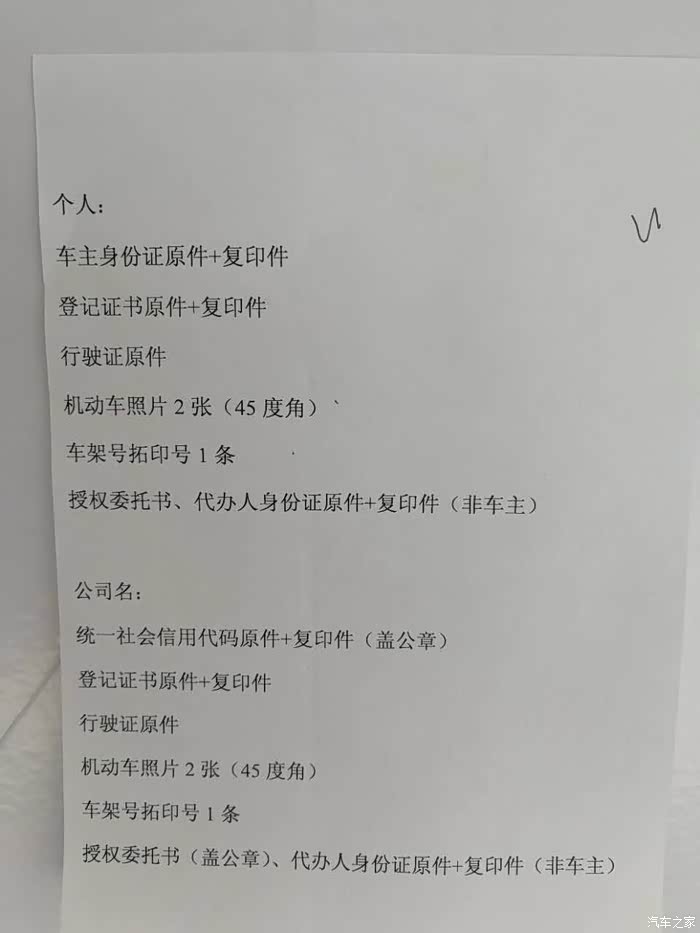 个人：
车主身份证原件+复印件
登记证书原件+复印件
行驶证原件
机动车照片 2 张（45 度角）
车架号拓印号 1 条
授权委托书、代办人身份证原件+复印件（非车主）
公司名：
统一社会信用代码原件+复印件（盖公章）
登记证书原件+复印件
行驶证原件
机动车照片 2 张（45 度角）
车架号拓印号 1 条
授权委托书（盖公章）、代办人身份证原件+复印件（非车主）
汽车之家